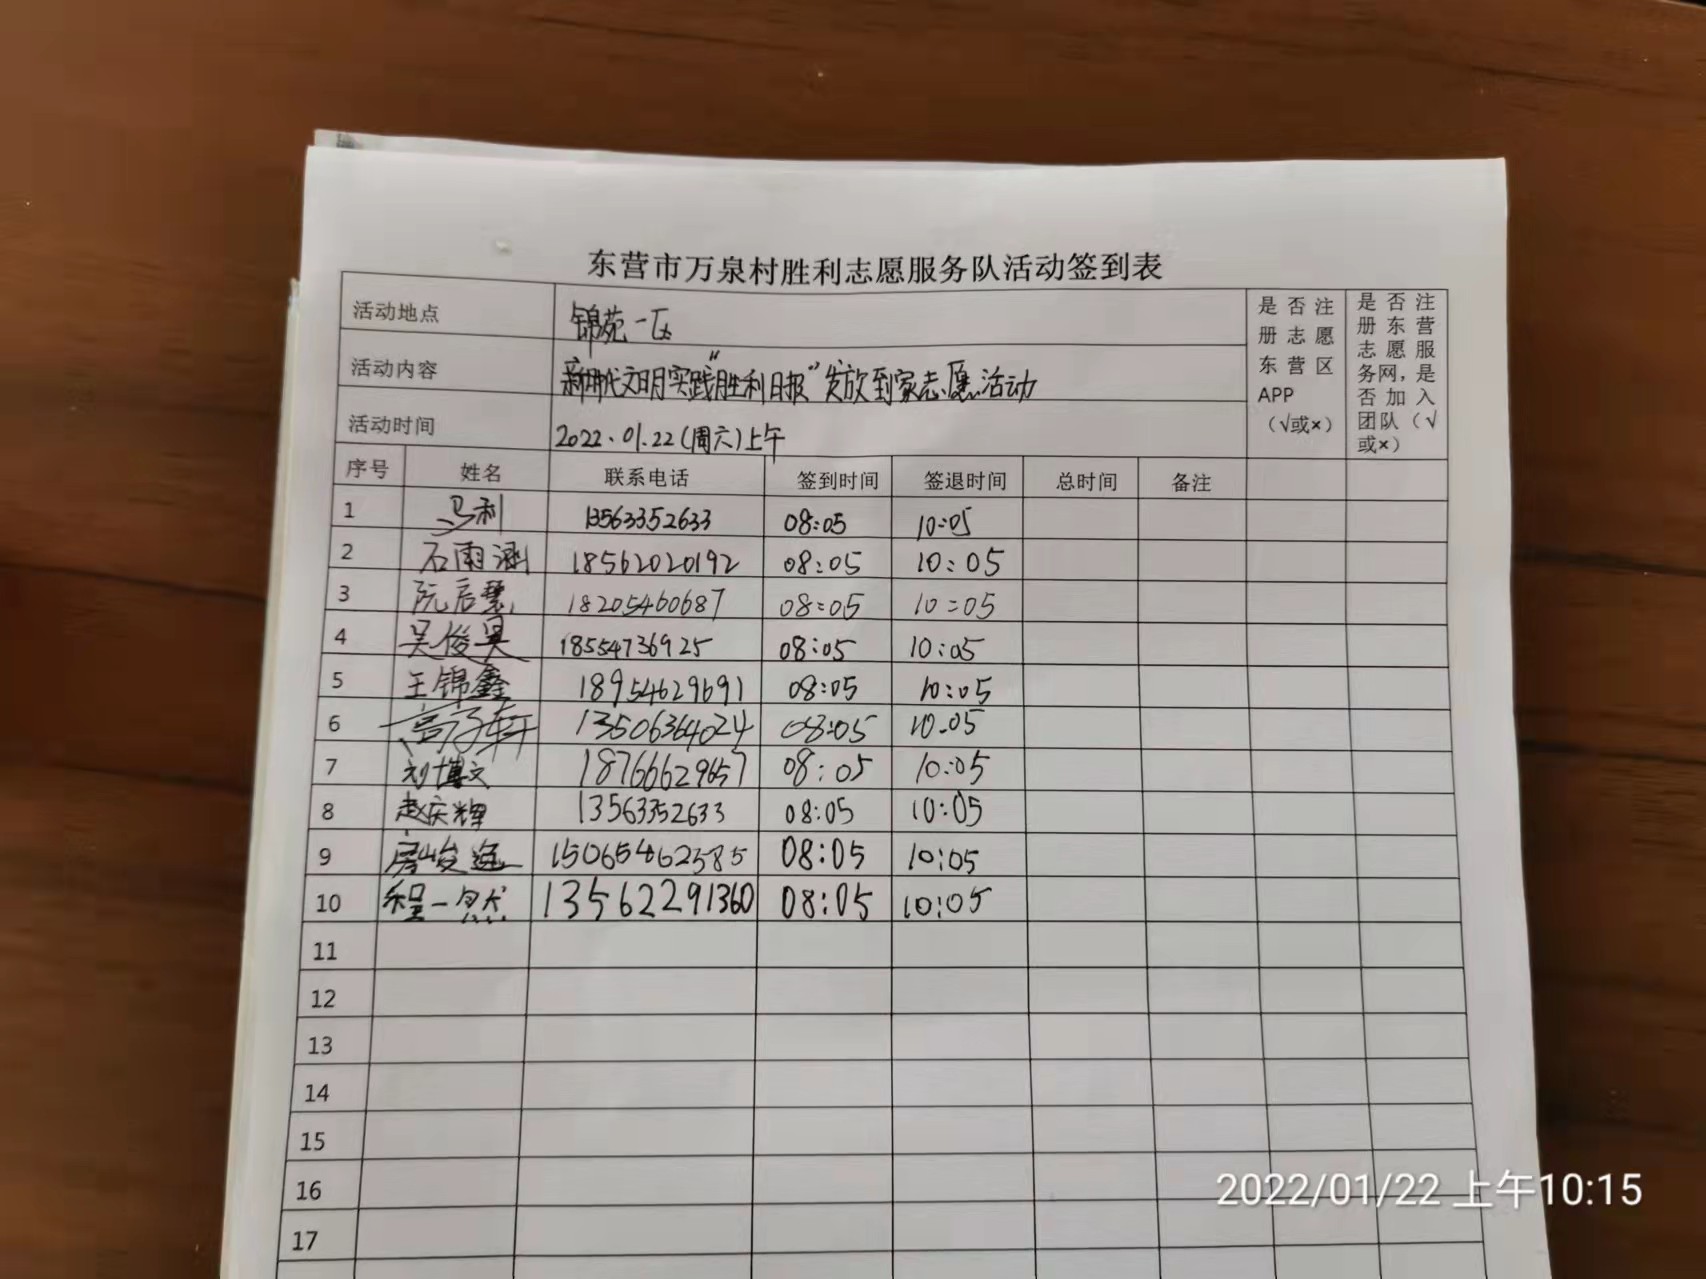 东营市万泉村胜利志愿服务队活动签到表
活动地点 锦苑一区
活动内容 新时代文明实践"胜利日报"发放到家志愿活动
活动时间 2022.01.22(周六)上午
是否注册志愿东营区APP（√或×）
是否注册东营志愿服务网，是否加入团队（√或×）
序号 姓名 联系电话 签到时间 签退时间 总时间 备注
1 马利 13563352633 08:05 10:05
2 石雨涵 18562020192 08:05 10:05
3 阮启慧 18205460687 08:05 10:05
4 吴俊昊 18554736925 08:05 10:05
5 王锦鑫 18954629691 08:05 10:05
6 高子轩 13506364024 08:05 10.05
7 刘博文 18766629657 08:05 10:05
8 赵庆辉 13563352633 08:05 10:05
9 房峻 15065462585 08:05 10:05
10 程一然 13562291360 08:05 10:05
11
12
13
14
15
16
17
2022/01/22 上午10:15